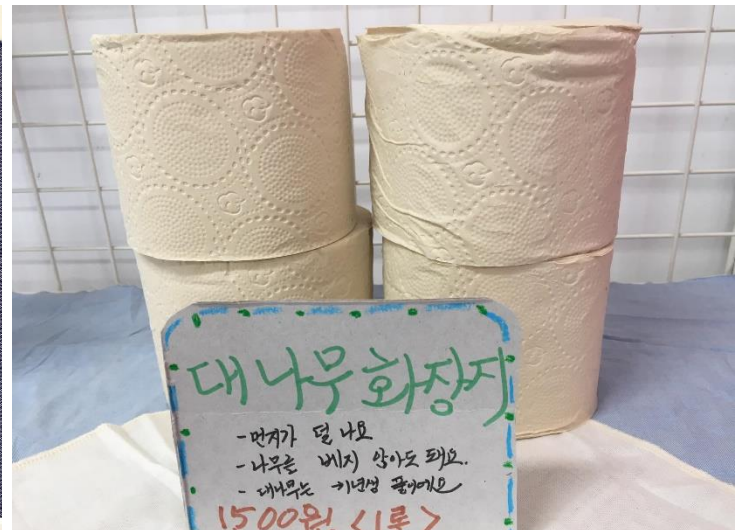 대나무화장지
- 먼지가 덜 나요
- 나무를 베지 않아도 돼요.
- 대나무는 →1년생 풀이에요
1500원 <1롤>